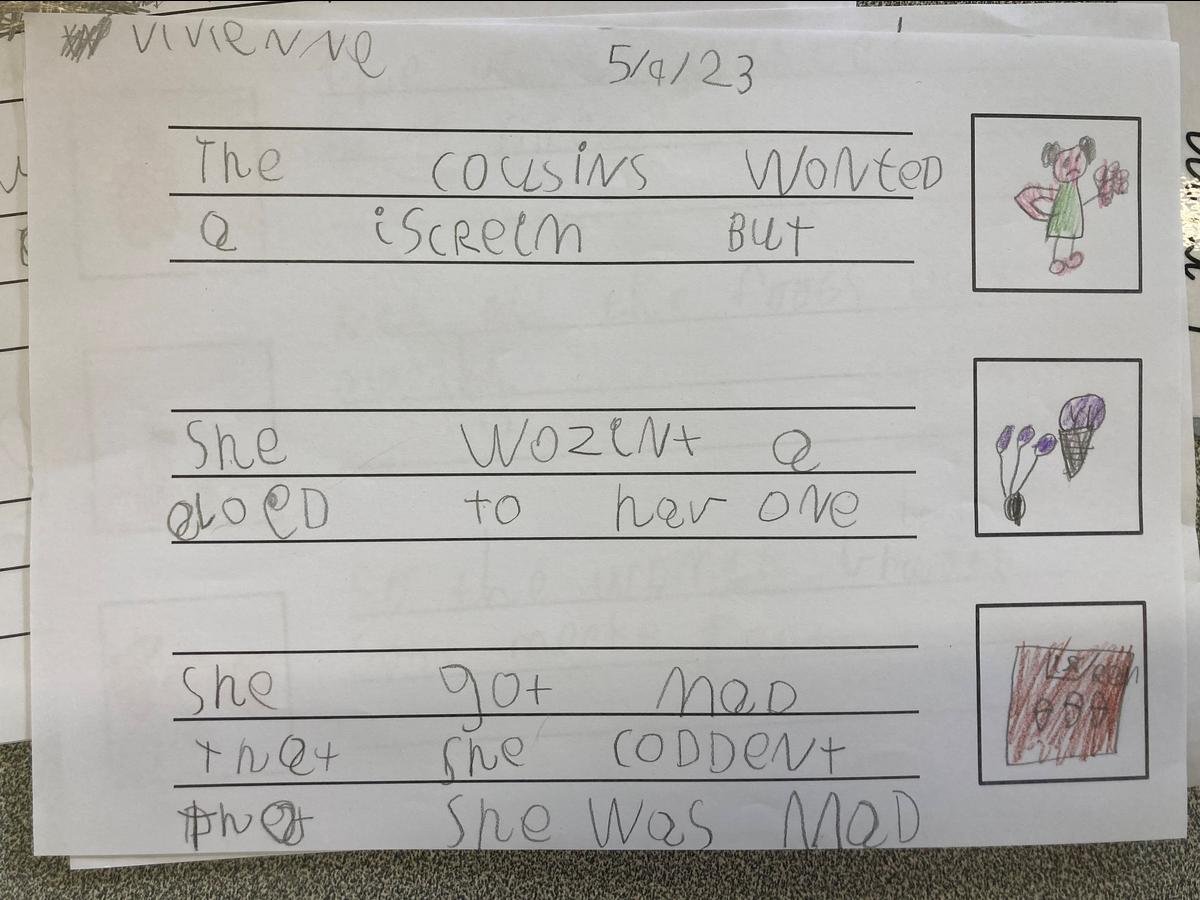 VIVIENNE
5/9/23
The cousins wonted
a iscreem But
She wozent a
aloeD to hav one
She got maD
that she coDDent
that she was maD